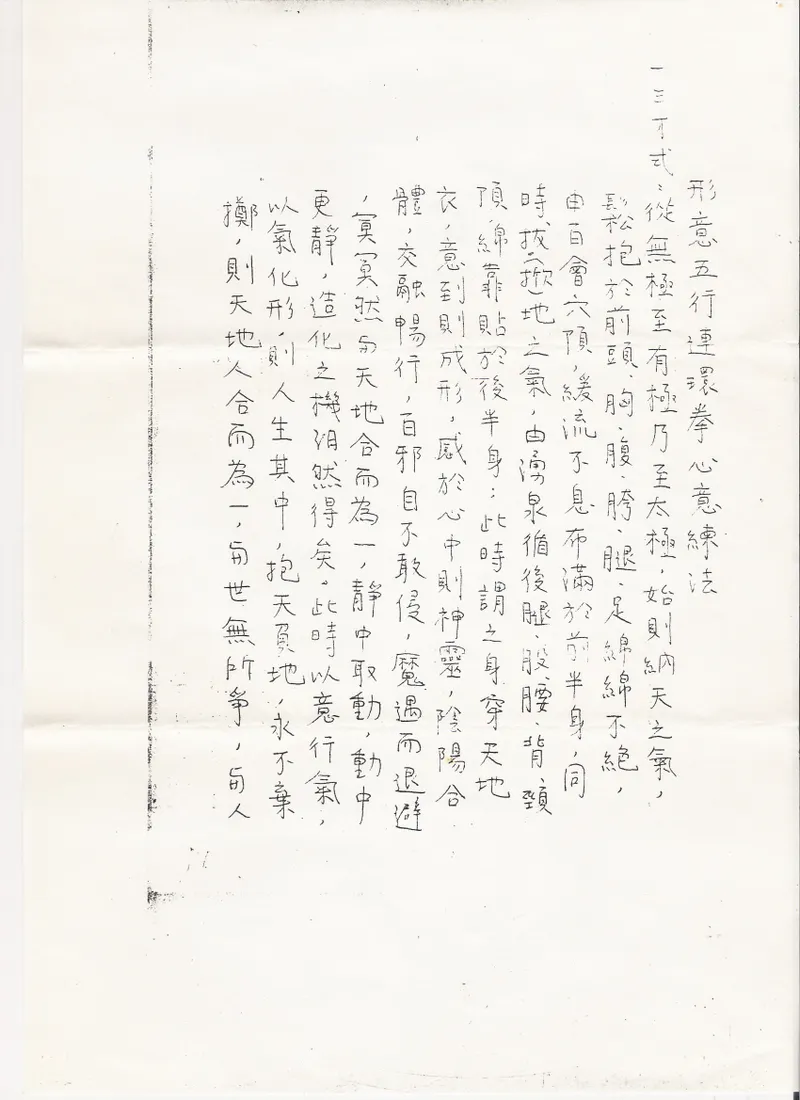 形意五行連環拳心意練法
一三才式：從無極至有極乃至太極，始則納天之氣，
鬆抱於前頭、胸、腹、胯、腿、足綿綿不絕，
由百會穴頂，緩流不息布滿於前半身，同
時拔（掀）地之氣，由湧泉循後腿、股、腰、背、頸
頂，綿靠貼於後半身；此時謂之身穿天地
衣，意到則成形，感於心中則神靈，陰陽合
體，交融暢行，百邪自不敢侵，魔遇而退避
，冥冥然与天地合而為一，靜中取動，動中
更靜，造化之機汨然得矣。此時以意行氣，
以氣化形，則人生其中，抱天負地，永不棄
擲，則天地人合而為一，与世無所爭，与人